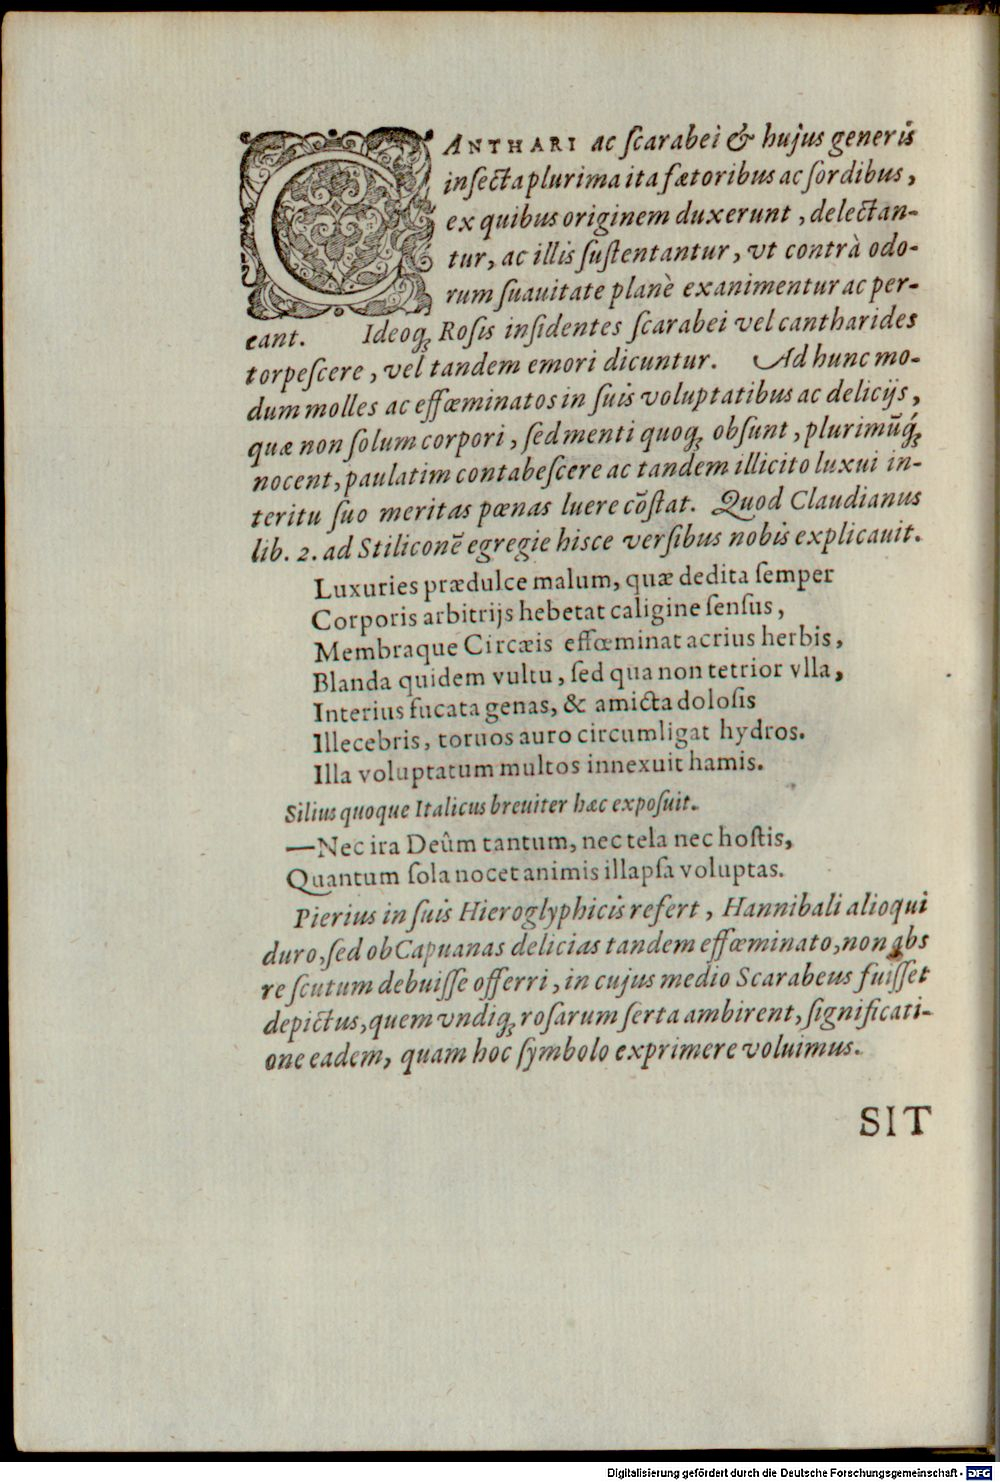 CANTHARI ac ſcarabei & hujus generis
inſecta plurima ita fœtoribus ac ſordibus,
ex quibus originem duxerunt, delectan-
tur, ac illis ſuſtentantur, vt contrà odo-
rum ſuauitate planè exanimentur ac per-
eant. Ideoq; Roſis inſidentes ſcarabei vel cantharides
torpeſcere, vel tandem emori dicuntur. Ad hunc mo-
dum molles ac effœminatos in ſuis voluptatibus ac delicijs,
quæ non ſolum corpori, ſed menti quoq; obſunt, plurimũq́;
nocent, paulatim contabeſcere ac tandem illicito luxui in-
teritu ſuo meritas pœnas luere cõſtat. Quod Claudianus
lib. 2. ad Stiliconẽ egregie hisce verſibus nobis explicauit.
Luxuries prædulce malum, quæ dedita ſemper
Corporis arbitrijs hebetat caligine ſenſus,
Membraque Circæis effœminat acrius herbis,
Blanda quidem vultu, ſed qua non tetrior vlla,
Interius fucata genas, & amicta doloſis
Illecebris, toruos auro circumligat hydros.
Illa voluptatum multos innexuit hamis.
Silius quoque Italicus breuiter hæc expoſuit.
—Nec ira Deûm tantum, nec tela nec hoſtis,
Quantum ſola nocet animis illapſa voluptas.
Pierius in ſuis Hieroglyphicis refert, Hannibali alioqui
duro, ſed ob Capuanas delicias tandem effœminato, non abs
re ſcutum debuiſſe offerri, in cujus medio Scarabeus fuiſſet
depictus, quem vndiq; roſarum ſerta ambirent, ſignificati-
one eadem, quam hoc ſymbolo exprimere voluimus.
SIT
Digitalisierung gefördert durch die Deutsche Forschungsgemeinschaft - DFG